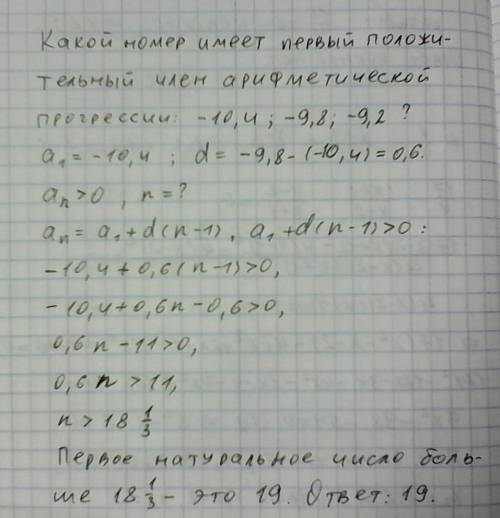 Какой номер имеет первый положи-
тельный член арифметической
прогрессии: -10,4; -9,8; -9,2 ?
a₁ = -10,4 ; d = -9,8-(-10,4) = 0,6.
aₙ>0 , n = ?
aₙ = a₁ + d(n-1), a₁ + d(n-1)>0 :
-10,4 + 0,6(n-1)>0,
-10,4+0,6n-0,6>0,
0,6n-11>0,
0,6n >11,
n > 18 1/3
Первое натуральное число боль-
ше 18 1/3 - это 19. Ответ: 19.